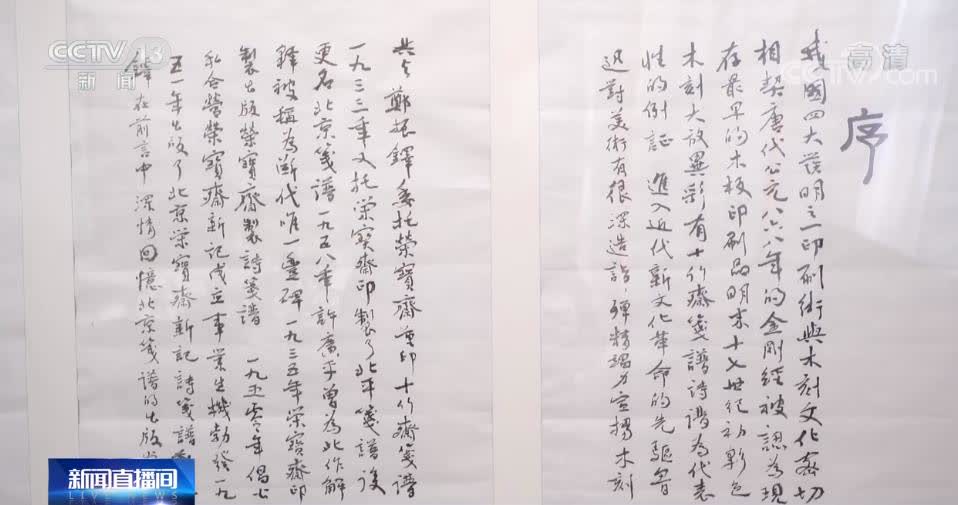 CCTV 13
新闻
CCTV
高清
序
我國四大发明之一印刷術與木刻文化密切
相契唐代公元八六八年的金剛經被認為現
存最早的木板印刷品明末十七世纪初彩色
木刻大放異彩有十竹齋箋譜詩譜為代表
性的例証 進入近代新文化革命的先驅魯
迅對美術有很深造詣 殫精竭力宣揚木刻
共与鄭振鐸委托榮寶齋重印十竹齋箋譜
一九三三年又托栄宝齋印製了北平箋譜後
更名北京箋譜一九五八年許廣平曾為此作解
釋被稱為断代唯一豐碑一九三五年栄寶齋印
製出版榮寶齋製詩箋譜 一九五零年倡公
私合營榮寶齋新記成立事業生機勃發一九
五一年出版了北京栄寶齋新記詩箋譜
鐸在前言中 深情回憶北京箋譜的出版
新闻直播间
LIVE NEWS